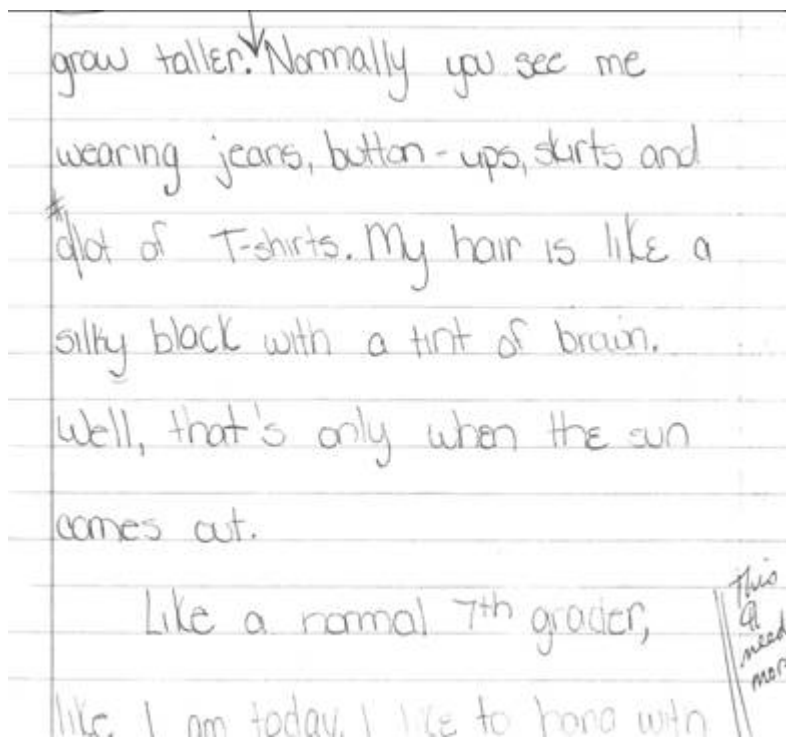 grow taller. Normally you see me
wearing jeans, button-ups, skirts and
alot of T-shirts. My hair is like a
silky black with a tint of brown.
Well, that's only when the sun
comes out.
Like a normal 7th grader,
like I am today. I like to hang with
This
need
more